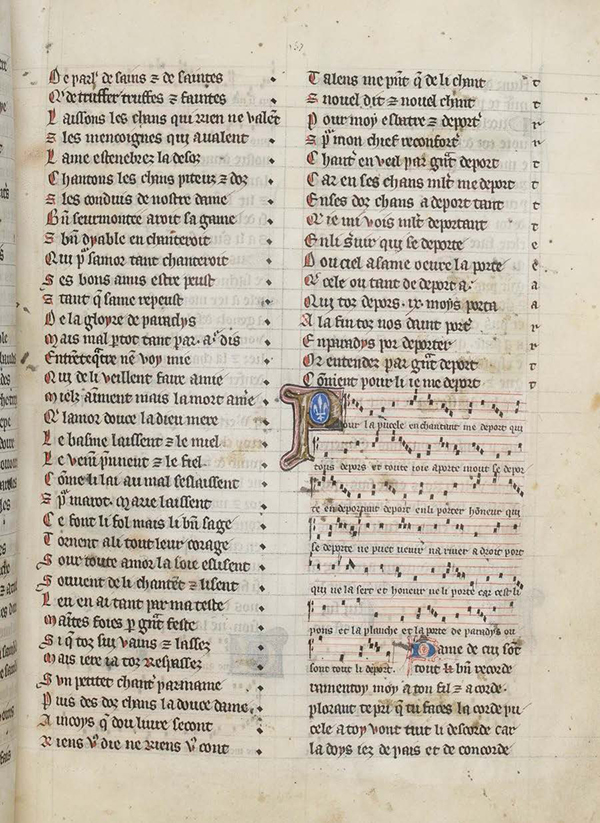 De parl' de sains ⁊ de saintes
Q' de truffer truffes ⁊ faintes
Laissons les chans qui rien ne valent
⁊ les mencoignes qui avalent
Lame estenebrez la desor
Chantons les chans piteuz ⁊ dor
⁊ les conduis de nostre dame
Bn̄ seurmonte aroit sa game
⁊ bn̄ dyable en chanteroit
Qui p' samor tant chanteroit
Ses bons amis estre peust
⁊ tant q' same repeust
De la gloyre de paradys
Mais mal p'tot tant par
ne voy mie
Qui de li veillent faire amie
Mielz aiment mais la mort amere
Q' lamor douce la dieu mere
Le basme laissent ⁊ le miel
Le venī prinnent ⁊ le fiel
Cōme li lai au mal seslaissent
⁊ p' marot marie laissent
Ce sont li fol mais li bn̄ sage
Tornent a li tout leur corage
Sour toute amor la soie eslisent
Souvient de li chantēt ⁊ lisent
Leu en ai tant par ma teste
Maītes foies p' gn̄t feste
Si q' toz sui vains ⁊ lassez
Mais iere ia toz respassez
Sun petitet chant' par mame
Puis des doz chans la douce dame
Aincoys q' dou livre secont
Riens v' die ne riens v' cont
Talens me pn̄t q' de li chant
⁊ novel dit ⁊ novel chant
Pour moy esbatre ⁊ deport'
⁊ p' mon chief reconfort'
Chant' en veil par gn̄t deport
Car en ses chans ml't me deport
En ses doz chans a deport tant
Q' ie mi vois ml't deportant
En li servir qui se deporte
Dou ciel a same oevre la porte
Q' cele ou tant de deport a
Qui toz depors .ix. moys porta
A la fin toz nos doint port'
En paradys por deporter
Or entendez par gn̄t deport
Cōment pour li ie me deport
Pour la pucele en chantant me deport qui
tous depors et toute ioie aporte mout se depor
te en deportant deport en li porter honeur qui
se deporte ne puet venir na river a droit port
qui ne la sert et honeur ne li porte car cest li
pons et la planche et la porte de paradys ou
Dame de cui sōt
sont tout li deport. tout li bn̄ recorde
ramentoy moy a ton fil ⁊ acorde
plorant te pri q' tu faces la corde pu
cele a toy vont tuit li descorde car
la doys iez de pais et de concorde